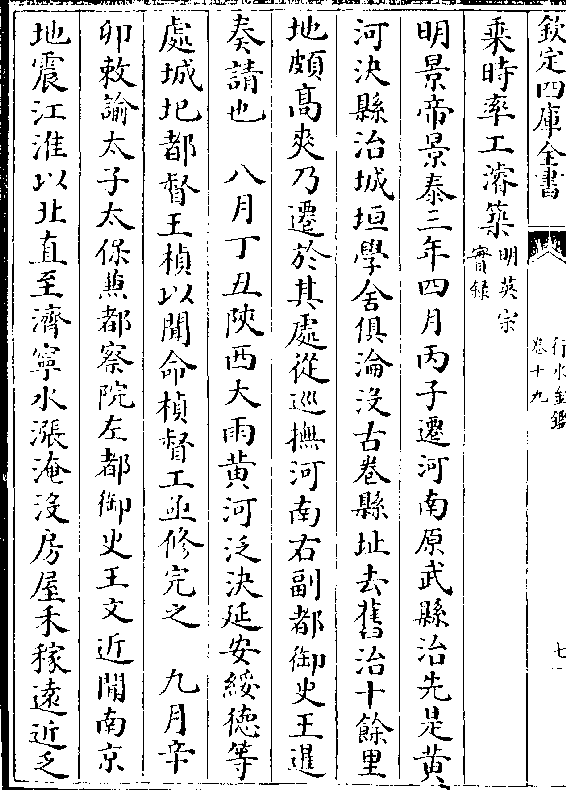 欽定四庫全書
行水金鑑
卷十九
七
乘時率工濬築明英宗
實錄
明景帝景泰三年四月丙子遷河南原武縣治先是黃
河決縣治城垣學舍俱淪沒古卷縣址去舊治十餘里
地頗高爽乃遷於其處從巡撫河南右副都御史王暹
奏請也 八月丁丑陝西大雨黃河泛決延安綏德等
處城圮都督王楨以聞命楨督工亟修完之 九月辛
卯敕諭太子太保兼都察院左都御史王文近聞南京
地震江淮以北直至濟寧水漲淹沒房屋禾稼遠近乏